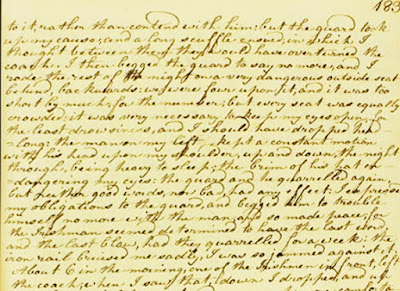 183
to it, rather than contend with him; but the guard took
up my cause; and a long scuffle ensued, in which I
thought between them they would have overturned the
coach: I then begged the guard to say no more, and I
rode the rest of the night on a very dangerous outside seat
behind, backwards: we were four upon it, and it was too
short by much, for the number; but every seat was equally
crowded: it was very necessary to keep my eyes open, for
the least drowsiness, and I should have dropped head
long: the man on my left kept a constant motion
with his head upon my shoulder, up and down the night
through, being heavy to sleep; the brim of his hat en
-dangered my eyes: the guard and he quarrelled again
but neither good words, nor bad had any effect. I expressed
my obligations to the guard, and begged him to trouble
himself no more with the man, and so made peace, for
the Irishman seemed determined to have the last word
and the last blow, had they quarrelled for a week: the
iron rail bruised me sadly, I was so jammed against it.
About 6 in the morning, one of the Irishmen in front, left
the coach; when I saw that, down I dropped, and up